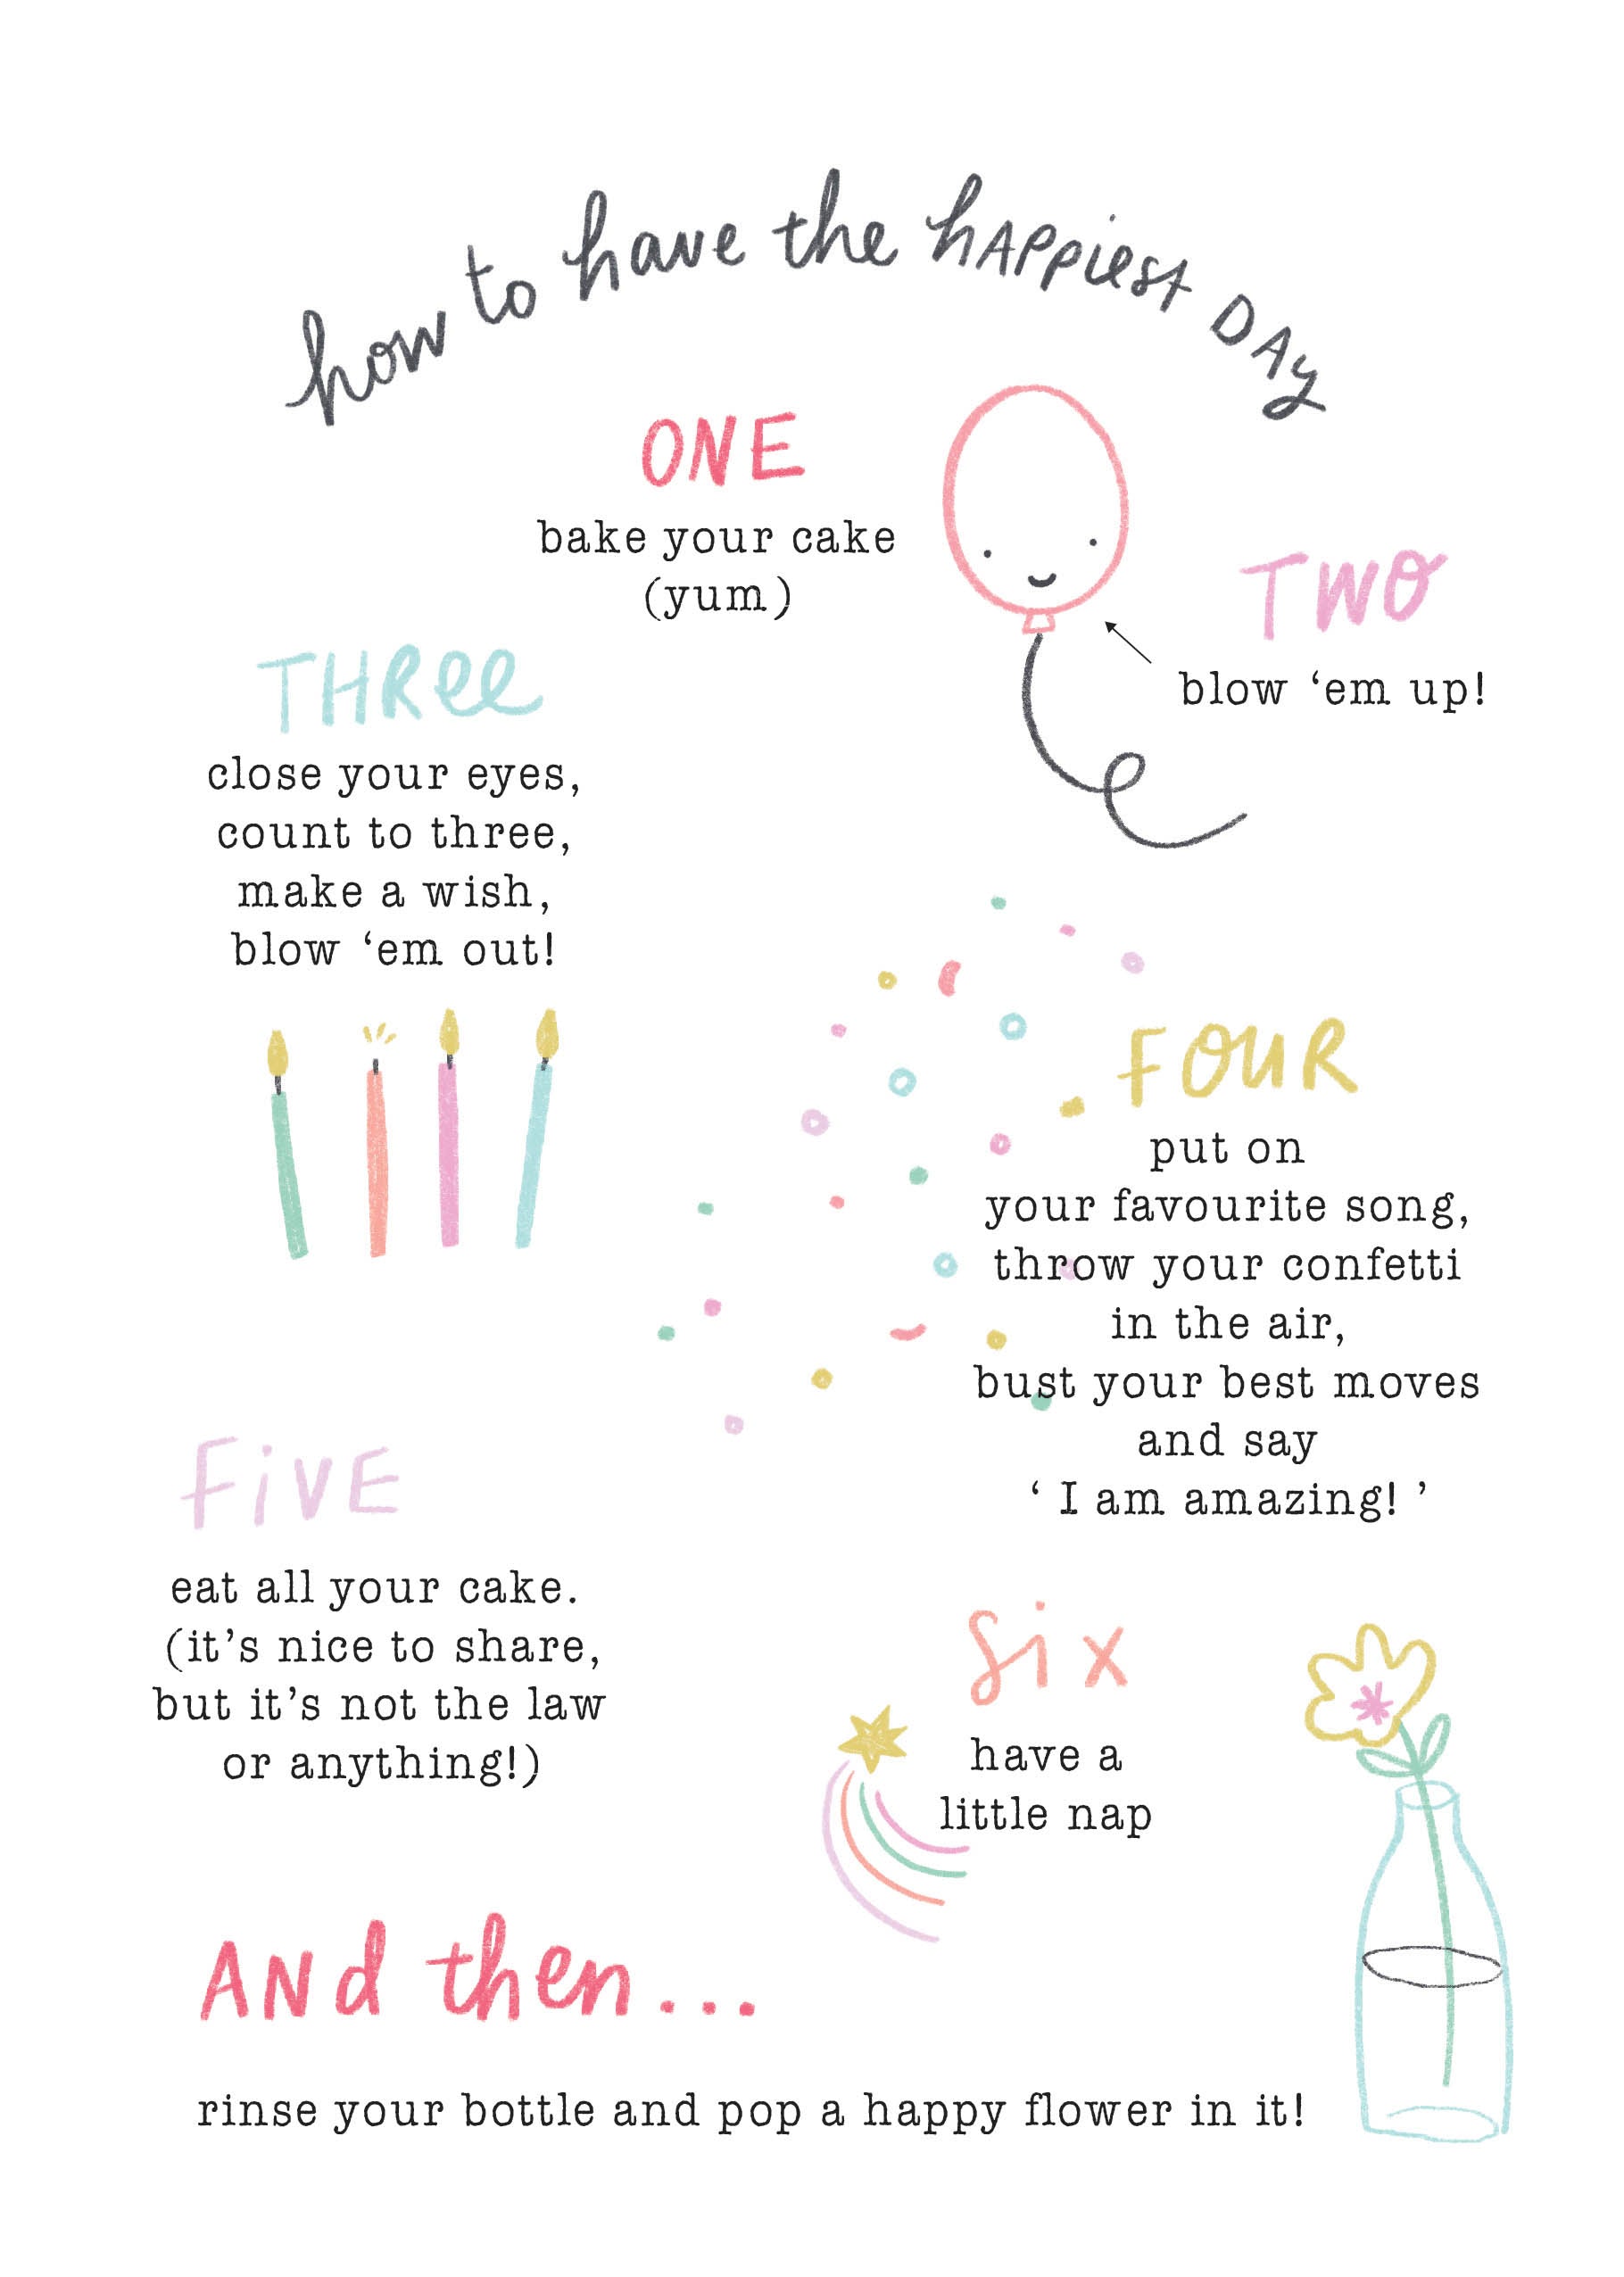 how to have the hAPPiest DAy
ONE
bake your cake
(yum)
TWO
blow ‘em up!
THRee
close your eyes,
count to three,
make a wish,
blow ‘em out!
FOUR
put on
your favourite song,
throw your confetti
in the air,
bust your best moves
and say
‘ I am amazing! ’
FiVE
eat all your cake.
(it’s nice to share,
but it’s not the law
or anything!)
six
have a
little nap
ANd then...
rinse your bottle and pop a happy flower in it!